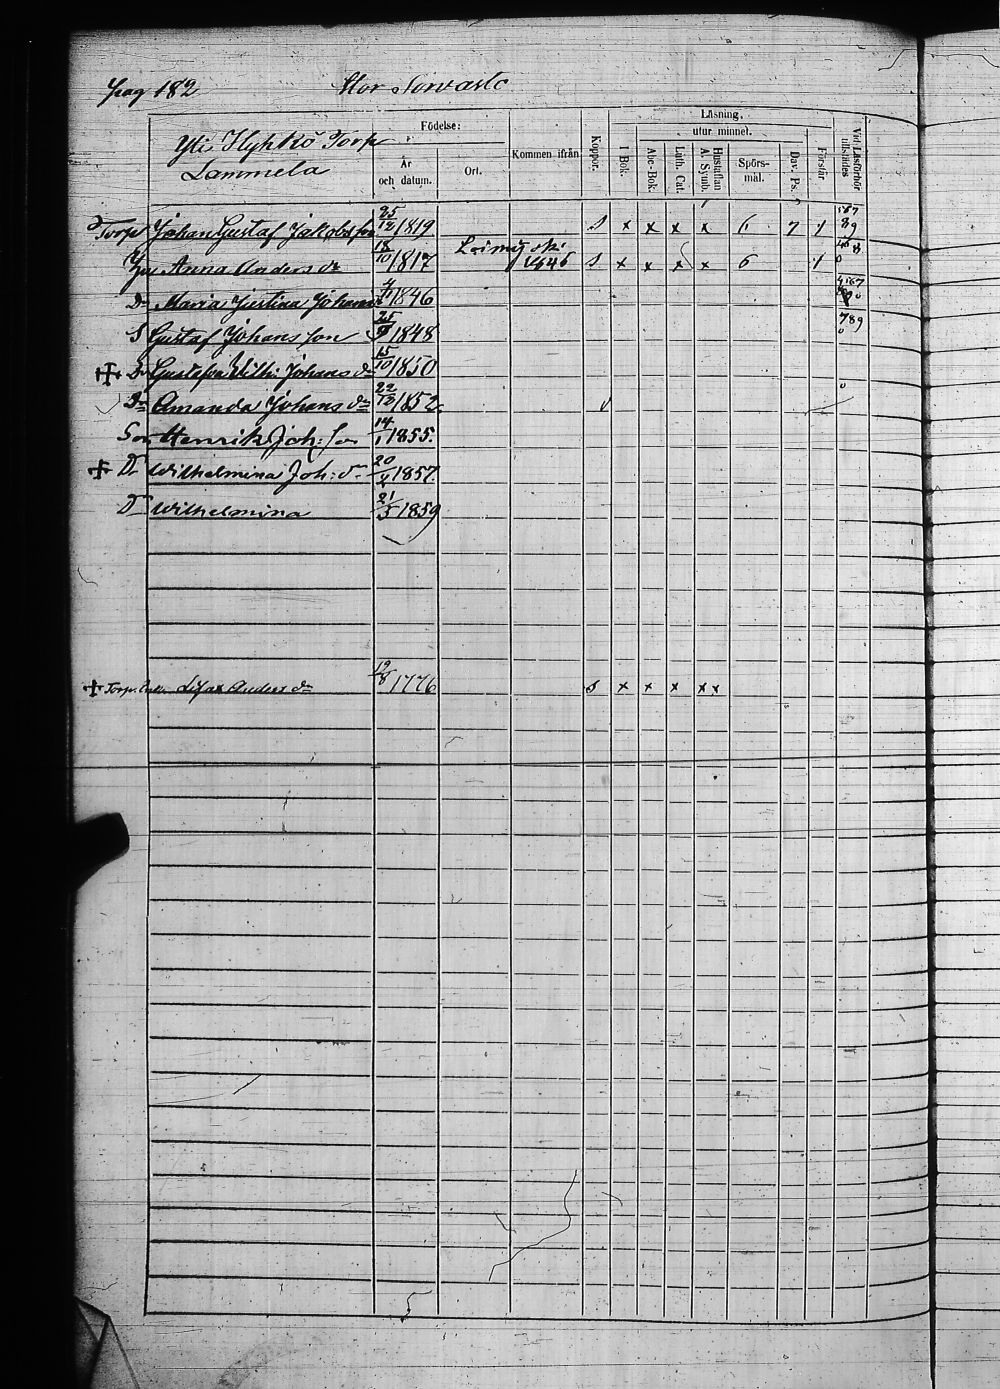 pag 182 Stor Sorvasto
Yli Hyhkö Torp
Lammela
Födelse:
År och datum.
Ort.
Kommen ifrån
Koppor.
Läsning,
I Bok.
utur minnet.
Abc-Bok.
Luth. Cat.
Hustaflan A. Symb.
Spörs-mål.
Dav. Ps.
Förstår
Vid Läsförhör tillstädes
Torp Johan Gustaf Jakobsson 25/12 1819 s x x x x 6 7 1 567 89
Hu Anna Anders dr 18/10 1817 Loimijoki 1845 s x x x x 6 1
Dr Maria Justina Johans 1846
S Gustaf Johans son 25/9 1848 789
+ Dr Gustafva Vilh: Johans dr 15/10 1850
Dr Amanda Johans dr 22/12 1852
Son Henrik Joh: so 14/1 1855.
+ Dr Wilhelmina Joh: dr 20/4 1857.
Dr Wilhelmina 21/5 1859
+ Torp. Enka Anders dr 19/8 1776 s x x x x x